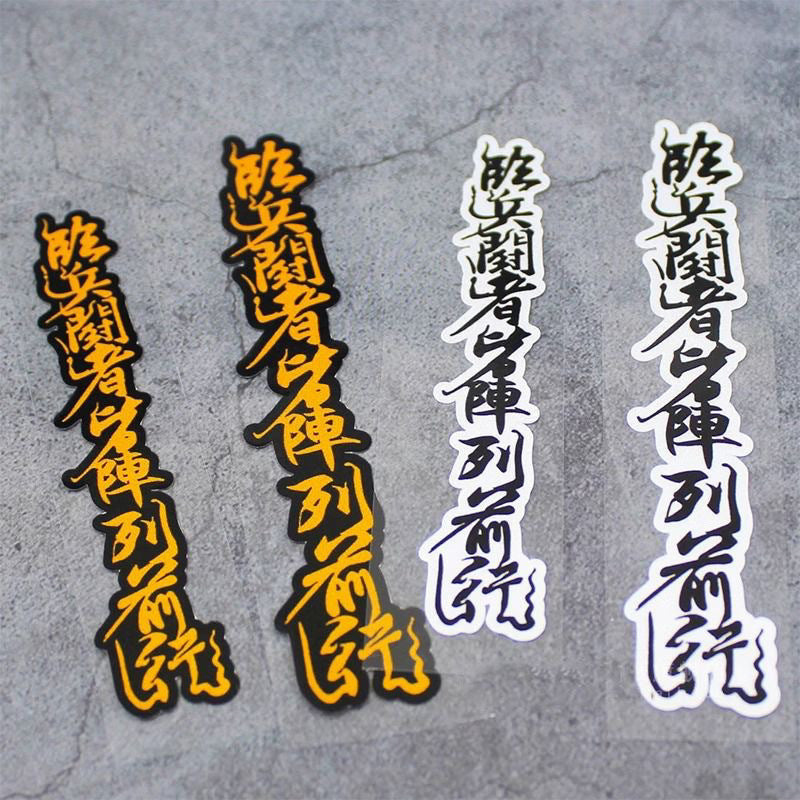 臨兵闘者皆陣列前行
臨兵闘者皆陣列前行
臨兵闘者皆陣列前行
臨兵闘者皆陣列前行